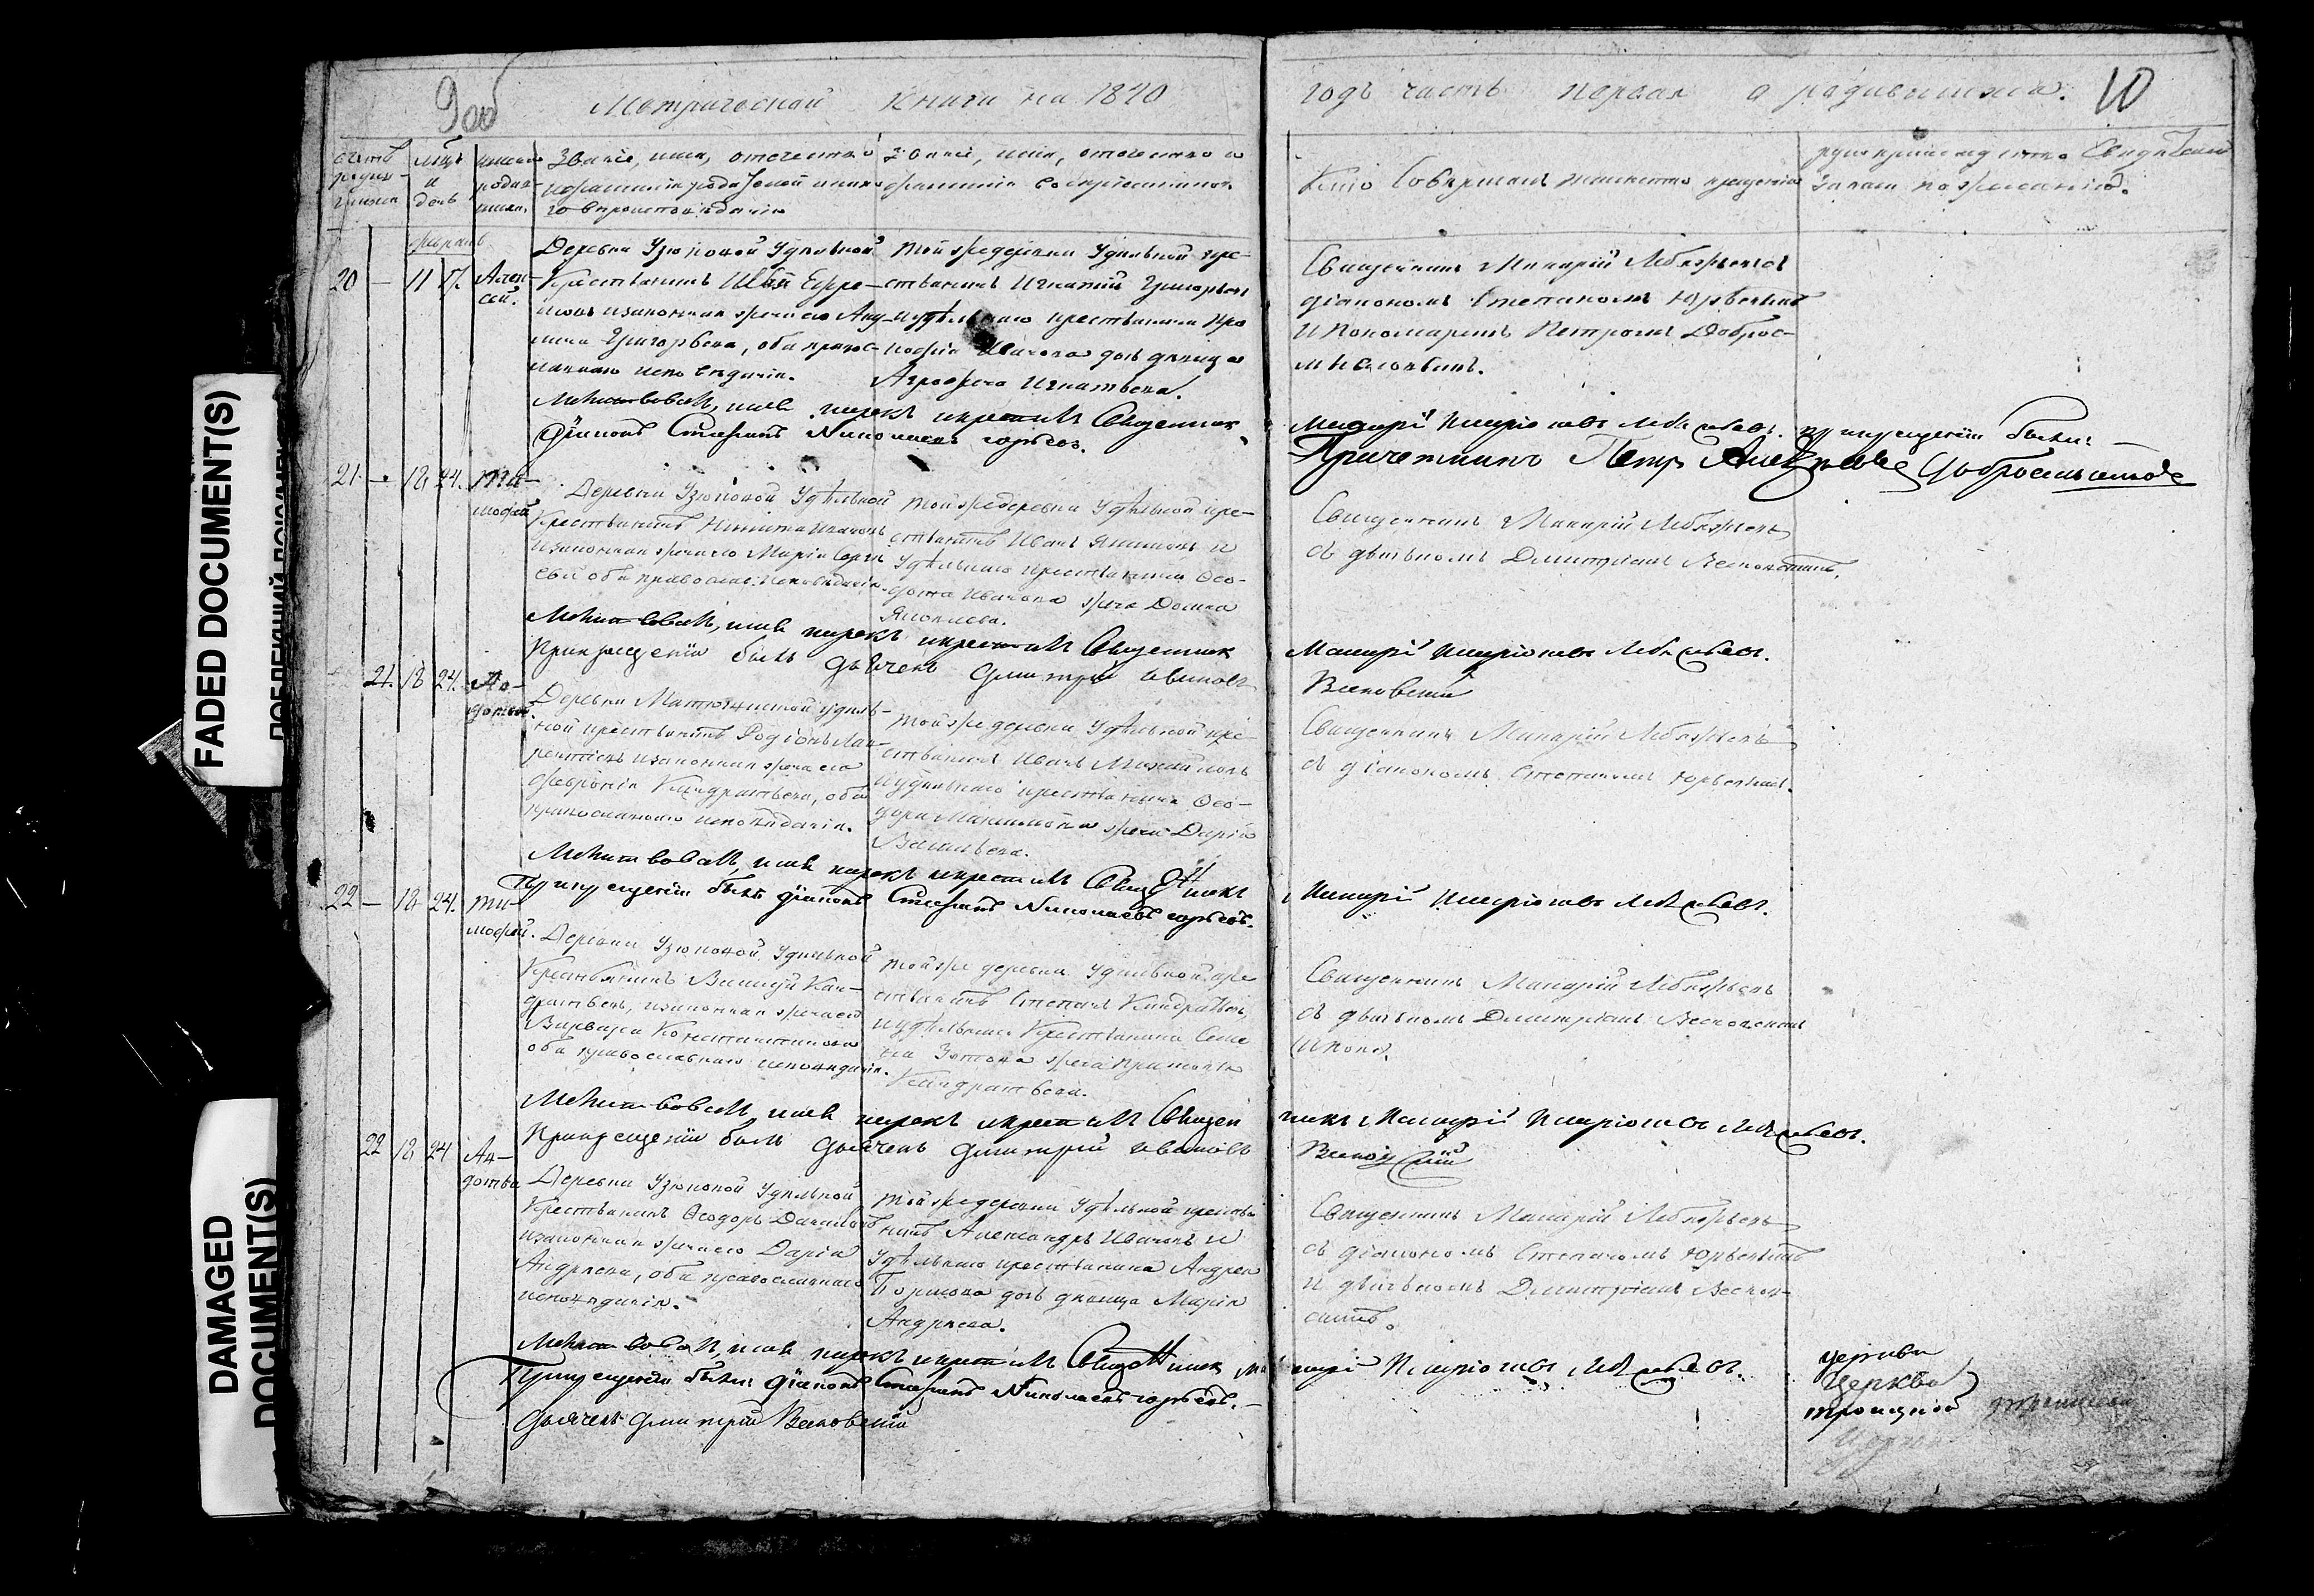 9 об
Метрической книги на 1840
годъ часть первая о родившихся. 10
счетъ родив-шихся
мѣцъ и день
имена родив-шихся.
Званіе, имя, отечество
и фамилія родителей и како-
го вероисповѣданія
Званіе, имя, отечество и
фамилія воспріемниковъ
Кто совершалъ таинство крещенія
рукоприкладство свидѣтелей
записи по желанію.
февраль
20 — 11 17. Алек-
сей.
Деревни Узюковой удѣльной
крестьянинъ Ефре-
мовъ и законная жена его Аку-
лина Григорьева, оба православ-
наго исповѣданія.
Той же деревни удѣльной кре-
стьянинъ Игнатій Григорьевъ
и удѣльнаго крестьянина Про
кофія Иванова дочь девица
Игнатьева.
Священникъ Макарій Лебяжьевъ съ
діакономъ Стефаномъ Юрьевымъ
и пономаремъ Петромъ Доброс-
мысловымъ.
Молитвовалъ, имя нарекъ и крестилъ Священник
Макарій Иларіоновъ Лебяжьевъ. при крещеніи были:
Діаконъ Стефанъ Николаевъ Юрьевъ.
Причетникъ Петръ Алексѣевъ Добросмысловъ
21. — 18 24. Ти-
мофей
Деревни Узюковой Удѣльной
крестьянинъ Никита Ивановъ
и законная жена его Марія Сергѣ
ева оба православ: исповѣданія.
Той же деревни Удѣльной кре-
стьянинъ Иванъ Якимовъ и
Удѣльнаго крестьянина Ѳео-
дота Иванова жена Домна
Яковлева.
Священникъ Макарій Лебяжьевъ
съ дьячкомъ Димитріемъ
Молитвовалъ, имя нарекъ и крестилъ Священник
Макарій Иларіоновъ Лебяжьевъ.
При крещеніи былъ дьячекъ Димитрій Ивановъ
21. 18 24. Ав-
дотья
Деревни удѣль-
ной крестьянинъ Родіонъ Лав-
рентьевъ и законная жена его
Февронія Кандратьева, оба
православнаго исповѣданія.
Той же деревни Удѣльной кре-
стьянинъ Иванъ Михайловъ
и удѣльнаго крестьянина Ѳео-
дора Максимова жена Дарія
Васильева.
Священникъ Макарій Лебяжьевъ
съ діакономъ Стефаномъ Юрьевымъ.
Молитвовалъ, имя нарекъ и крестилъ Священникъ
Макарій Иларіоновъ Лебяжьевъ.
При крещеніи былъ діаконъ Стефанъ Николаевъ Юрьевъ.
22 — 18 24. Ти-
мофей.
Деревни Узюковой, Удѣльной
крестьянинъ Василій Кан-
дратьевъ, и законная жена его
Варвара Константинова
оба православнаго исповѣданія.
Той же деревни Удѣльной кре
стьянинъ Степанъ Кандратьевъ,
и удѣльнаго крестьянина Семе
на Зотова жена
Кандратьева.
Священникъ Макарій Лебяжьевъ
съ дьячкомъ Димитріемъ
Молитвовалъ, имя нарекъ и крестилъ Священ
никъ Макарій Иларіоновъ Лебяжьевъ.
При крещеніи былъ дьячекъ Димитрій Ивановъ
22 18 24 Ав-
дотья
Деревни Узюковой Удѣльной
Крестьянинъ Ѳеодоръ Даниловъ
и законная жена его Дарія
Андреева, оба православнаго
исповѣданія.
Той же деревни Удѣльной крестья
нинъ Александръ Ивановъ и
Удѣльнаго крестьянина Андрея
дочь девица Марія
Андреева.
Священникъ Макарій Лебяжьевъ
съ діакономъ Стефаномъ Юрьевымъ
и дьячкомъ Димитріемъ
Молитвовалъ, имя нарекъ и крестилъ Священникъ Ма
карій Иларіоновъ Лебяжьевъ.
При крещеніи были: діаконъ Стефанъ Николаевъ Юрьевъ. —
дьячекъ Димитрій
церкви
Церкви
троицкой
FADED DOCUMENT(S)
DAMAGED
DOCUMENT(S)